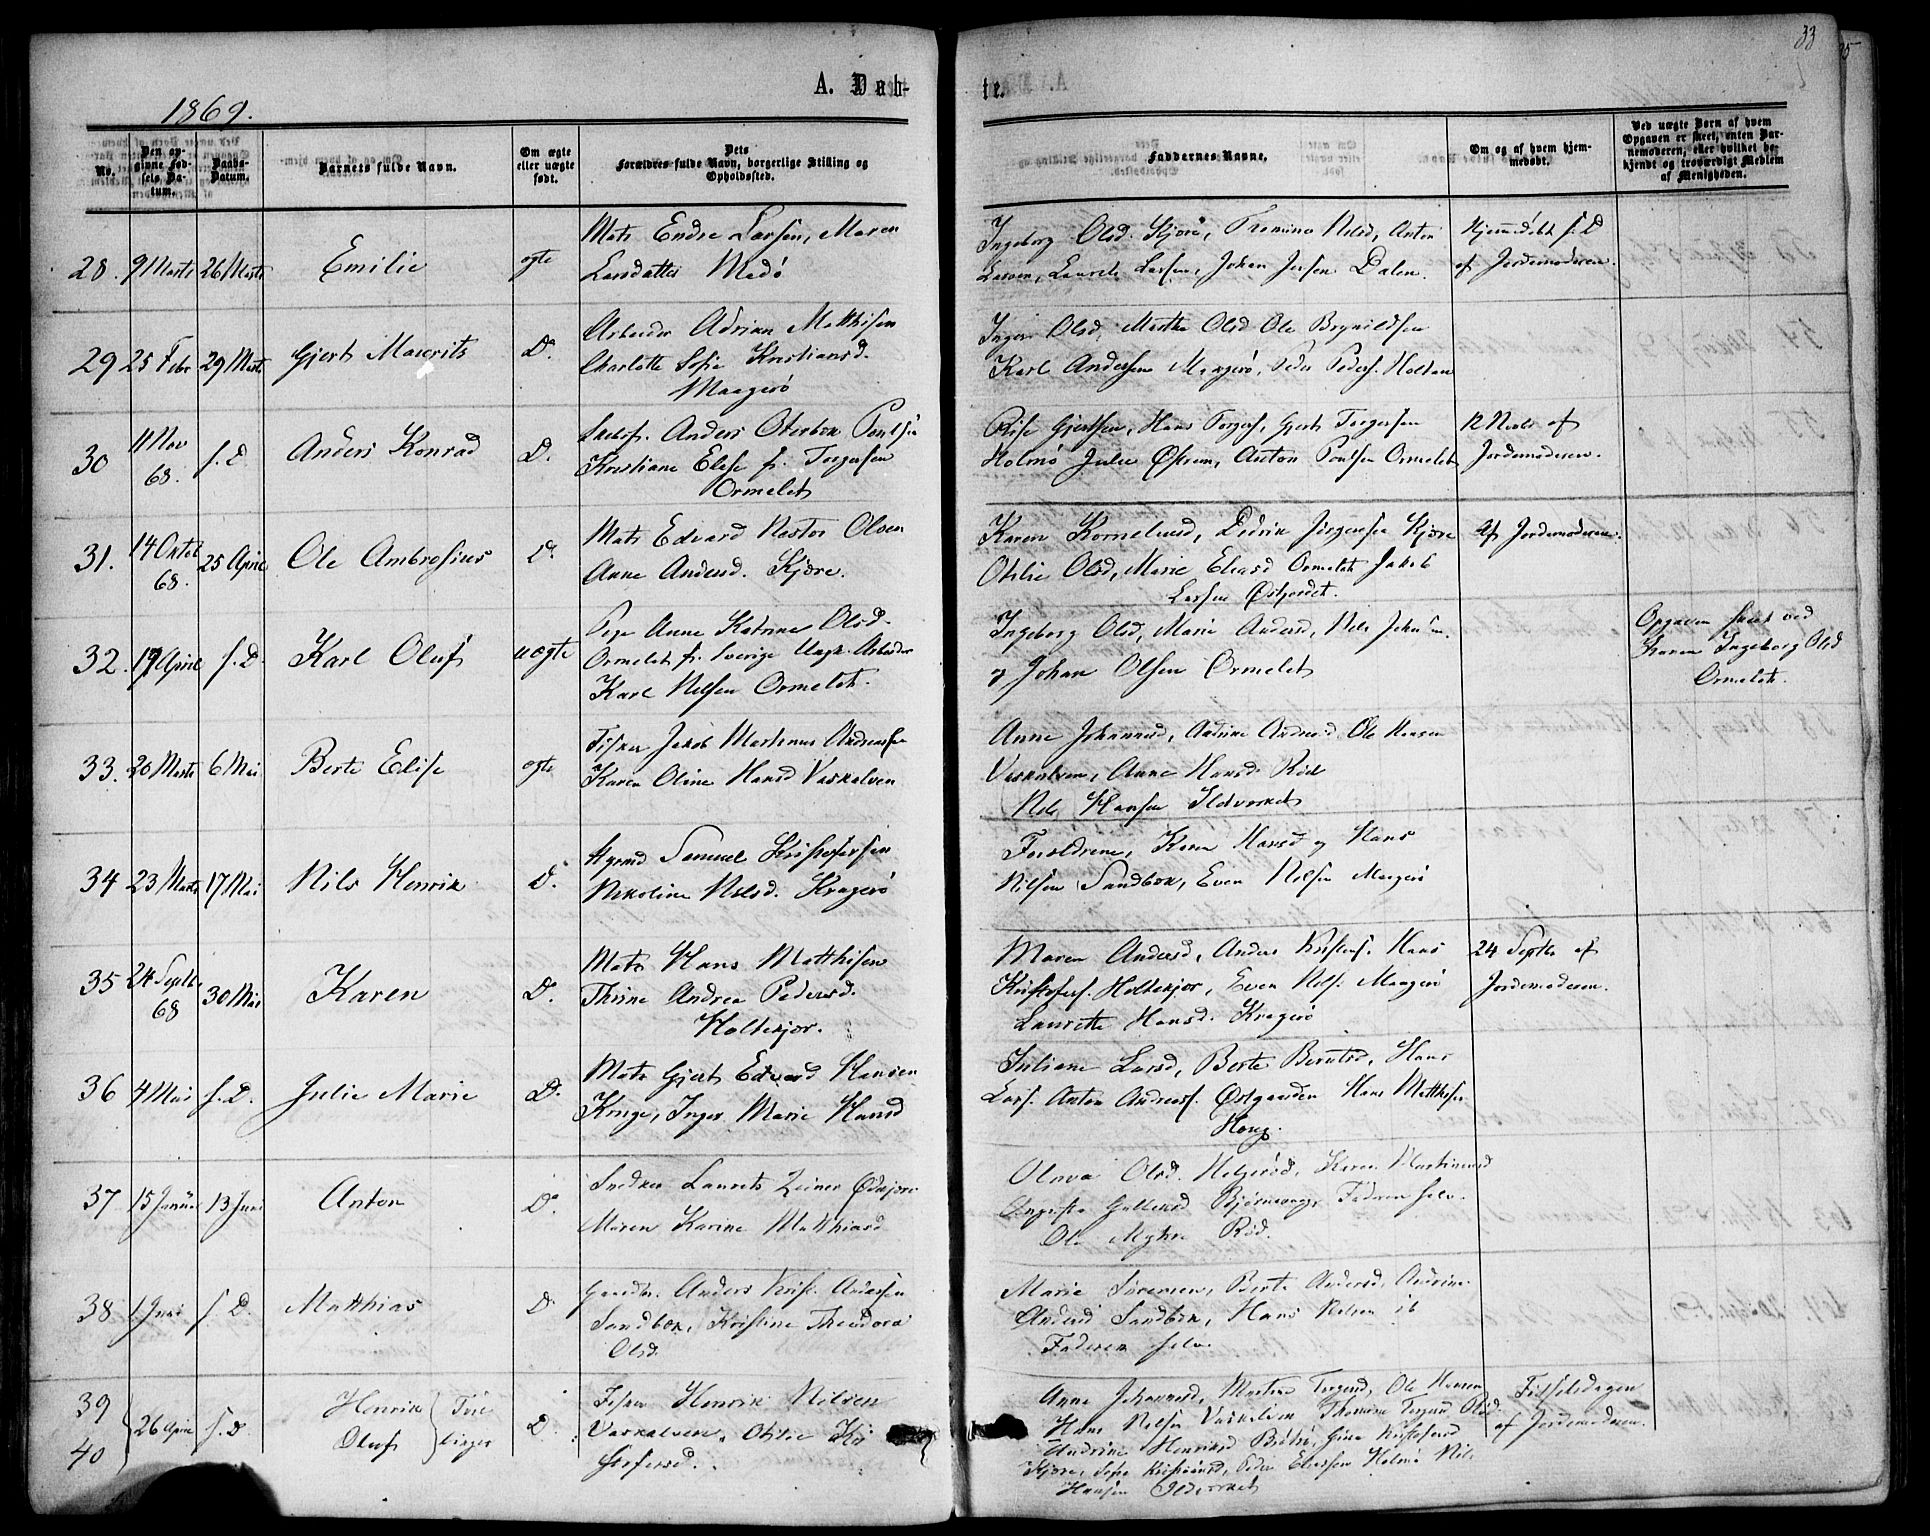 33
1869.
A. Døb-
te.
No.
Den opgivne Fødsels Datum.
Daabs-Datum.
Barnets fulde Navn.
Om ægte eller uægte født.
Dets Forældres fulde Navn, borgerlige Stilling og Opholdssted.
Faddernes Navne.
Om og af hvem hjemmedøbt.
Ved uægte Børn af hvem Opgaven er skeet, enten Barnemoderen, eller hvilket bekjendt og troværdigt Medlem af Menigheden.
28. 9 Marts 26 Marts Emilie ægte
Matr Endre Larsen, Maren
Larsdatter Medö
Ingeborg Olsd. Kjøre, Nilsd, Anton
Larsen, Laurits Larsen, Johan Jersen Dalen.
Hjemmedøbt s. D
af Jordemoderen.
29 25 Febr 29 Marts Gjert Mourits D.
Arbeider Adrian Matthisen
Charlotte Sofie Kristiansd.
Maagerö
Inger Olsd, Marthe Olsd Ole Brynildsen
Karl Andersen Maagerö, Peder Peders. Holtan
30 11 Nov 68. s. D. Anders Konrad D.
Anders Oterbek Poulsen
Kristiane Elise f. Torgersen
Ormelet
Gjertsen, Hans Torgers, Gjert Torgersen
Holmö Julie Østrem, Anton Poulsen Ormelet
12 Novbr af
Jordemoderen.
31. 14 Oktob 68. 25 April Ole Ambrosius D.
Matr Edvard Nestor Olsen
Anne Andersd. Kjøre.
Karen Korneliusd, Didrik Jørgensen Kjøre
Otilie Olsd, Marie Eliasd Ormelet Jakob
Larsen Østjordet.
Af Jordemoderen.
32. 19 April s. D. Karl Oluf uægte
Pige Anne Katrine Olsd.
Ormelet fr. Sverige Ungk. Arbeider
Karl Nilsen Ormelet.
Ingeborg Olsd, Marie Andersd, Nils Johnsen.
og Johan Olsen Ormelet
Opgaven skeet ved
Karen Ingeborg Olsd
Ormelet.
33. 20 Marts 6 Mai Berte Elise ægte
Fisker Jakob Martinus Andreassen
Karen Oline Hansd Vaskalven
Anne Johannesd, Andrine Andersd Ole Hansen
Vaskalven, Anne Hansd. Röd
Nils Hansen Ildverket
34 23 Marts 17 Mai Nils Henrik D.
Styrmd Samuel Kristofersen
Nikoline Nilsd. Kragerö
Forældrene, Karen Hansd og Hans
Nilsen Sandbæk, Even Nilsen Maagerö
35 24 Septbr 68 30 Mai Karen D.
Matr Hans Matthisen
Thrine Andrea Pedersd.
Holtekjær.
Maren Andersd, Anders Kristens. Hans
Kristofers. Holtekjær, Even Nils. Maagerö
Laurette Hansd. Kragerö
24 Septbr af
Jordemoderen.
36 4 Mai s. D. Julie Marie D.
Matr Gjert Edvard Hansen
Kruge, Inger Marie Hansd
Juliane Larsd, Berte Berntsd, Hans
Lars. Anton Andreass. Østgaarden Hans Matthisen
Haug.
37 15 Januar 13 Juni Anton D.
Snedker Laurits Zeiner Ødekjær
Maren Karine Matthiasd
Olava Olsd. Helgeröd, Karen Martinusd
Augusta Gulliksd Bjørnevaag, Faderen selv.
Ole Myhre Röd.
38 1 Juni s. D. Matthias D
Gaardbr. Anders Krist. Andersen
Sandbæk, Kristine Theodora
Olsd.
Marie Sørensen, Berte Andersd, Andrine
Andersd Sandbæk, Hans Nilsen ib
Faderen selv.
39
40 26 April s. D Henrik
Oluf Tvillinger D.
Fisker Henrik Nilsen
Vaskalven, Otilie Kri
stofersd.
Anne Johannesd, Martine Torgersd, Ole Hansen
Hans Nilsen Vaskalven Thomine Torgersd Röd.
Andrine Henriksd Brötsö, Gina Kristofersd
Kjøre, Sofie Kristiansd, Peder Eliassen Holmö Nils
Hansen Ildverket
Fødselsdagen
af Jordemoderen.